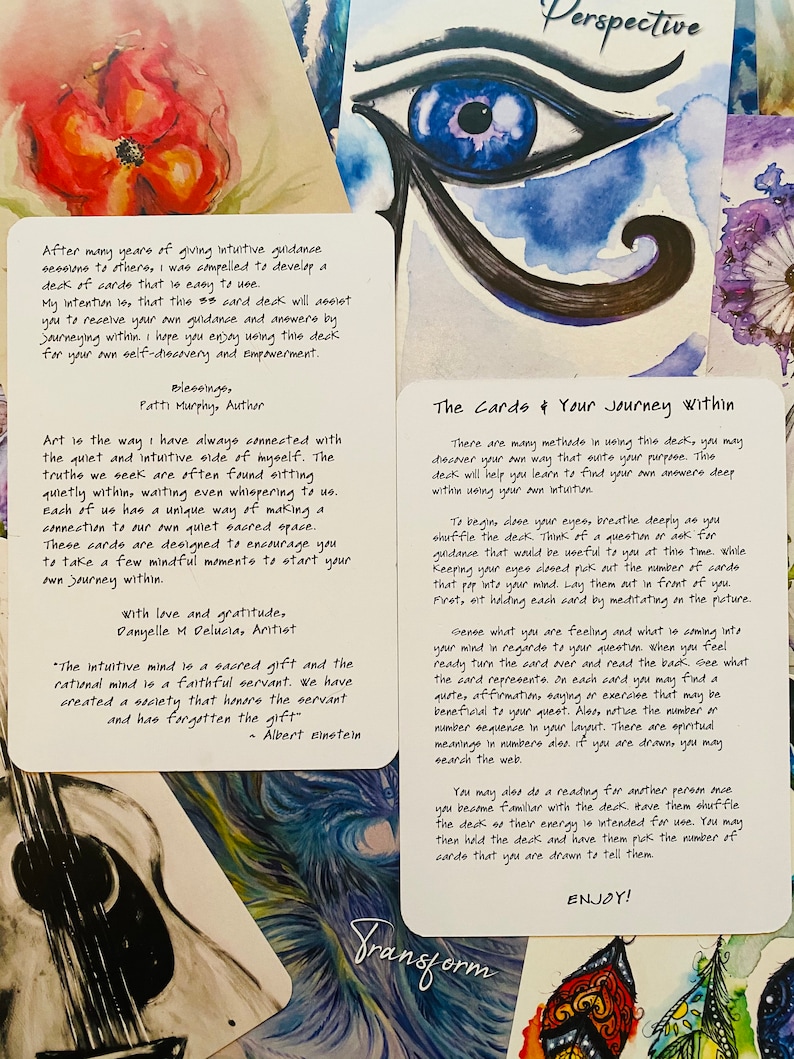 Perspective
After many years of giving intuitive guidance
sessions to others, I was compelled to develop a
deck of cards that is easy to use.
My intention is, that this 33 card deck will assist
you to receive your own guidance and answers by
journeying within. I hope you enjoy using this deck
for your own self-discovery and Empowerment.
Blessings,
Patti Murphy, Author
Art is the way I have always connected with
the quiet and intuitive side of myself. The
truths we seek are often found sitting
quietly within, waiting even whispering to us.
Each of us has a unique way of making a
connection to our own quiet sacred space.
These cards are designed to encourage you
to take a few mindful moments to start your
own journey within.
With love and gratitude,
Danyelle M Delucia, Aritist
"The intuitive mind is a sacred gift and the
rational mind is a faithful servant. We have
created a society that honors the servant
and has forgotten the gift"
~ Albert Einstein
The Cards & Your Journey Within
There are many methods in using this deck, you may
discover your own way that suits your purpose. This
deck will help you learn to find your own answers deep
within using your own intuition.
To begin, close your eyes, breathe deeply as you
shuffle the deck. Think of a question or ask for
guidance that would be useful to you at this time. While
keeping your eyes closed pick out the number of cards
that pop into your mind. Lay them out in front of you.
First, sit holding each card by meditating on the picture.
Sense what you are feeling and what is coming into
your mind in regards to your question. When you feel
ready turn the card over and read the back. See what
the card represents. On each card you may find a
quote, affirmation, saying or exercise that may be
beneficial to your quest. Also, notice the number or
number sequence in your layout. There are spiritual
meanings in numbers also. If you are drawn, you may
search the web.
You may also do a reading for another person once
you become familiar with the deck. Have them shuffle
the deck so their energy is intended for use. You may
then hold the deck and have them pick the number of
cards that you are drawn to tell them.
ENJOY!
Transform